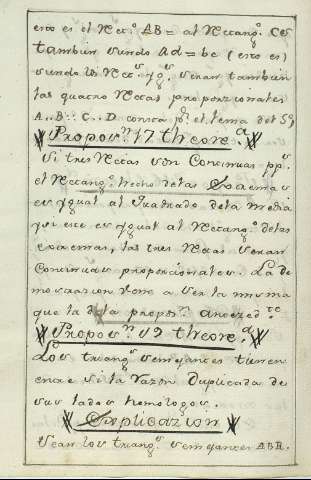 esto es el Rectº AB = al Rectangº CS
tambien siendo Ad = bc (esto es)
siendo los Recsº ygs seran tambien
las quatro Rectas proporzionales
A..B::C..D consta pr el lema del 5º
Proposn 17 theorea
Si tres Rectas son Continuas pps
el Rectangº hecho delas Extremas
es ygual al Quadrado dela media
y si este es ygual al Rectangº delas
Extremas, las tres Rectas seran
Continuas proporcionales. La de
mostrazion viene a ser la misma
que la dela propsn antecedte
Proposn 19 theorea
Los triangs semejantes tienen
entre si la Razon Duplicada de
sus lados homologos.
Explicazion
Sean los triangs semejantes ABR.